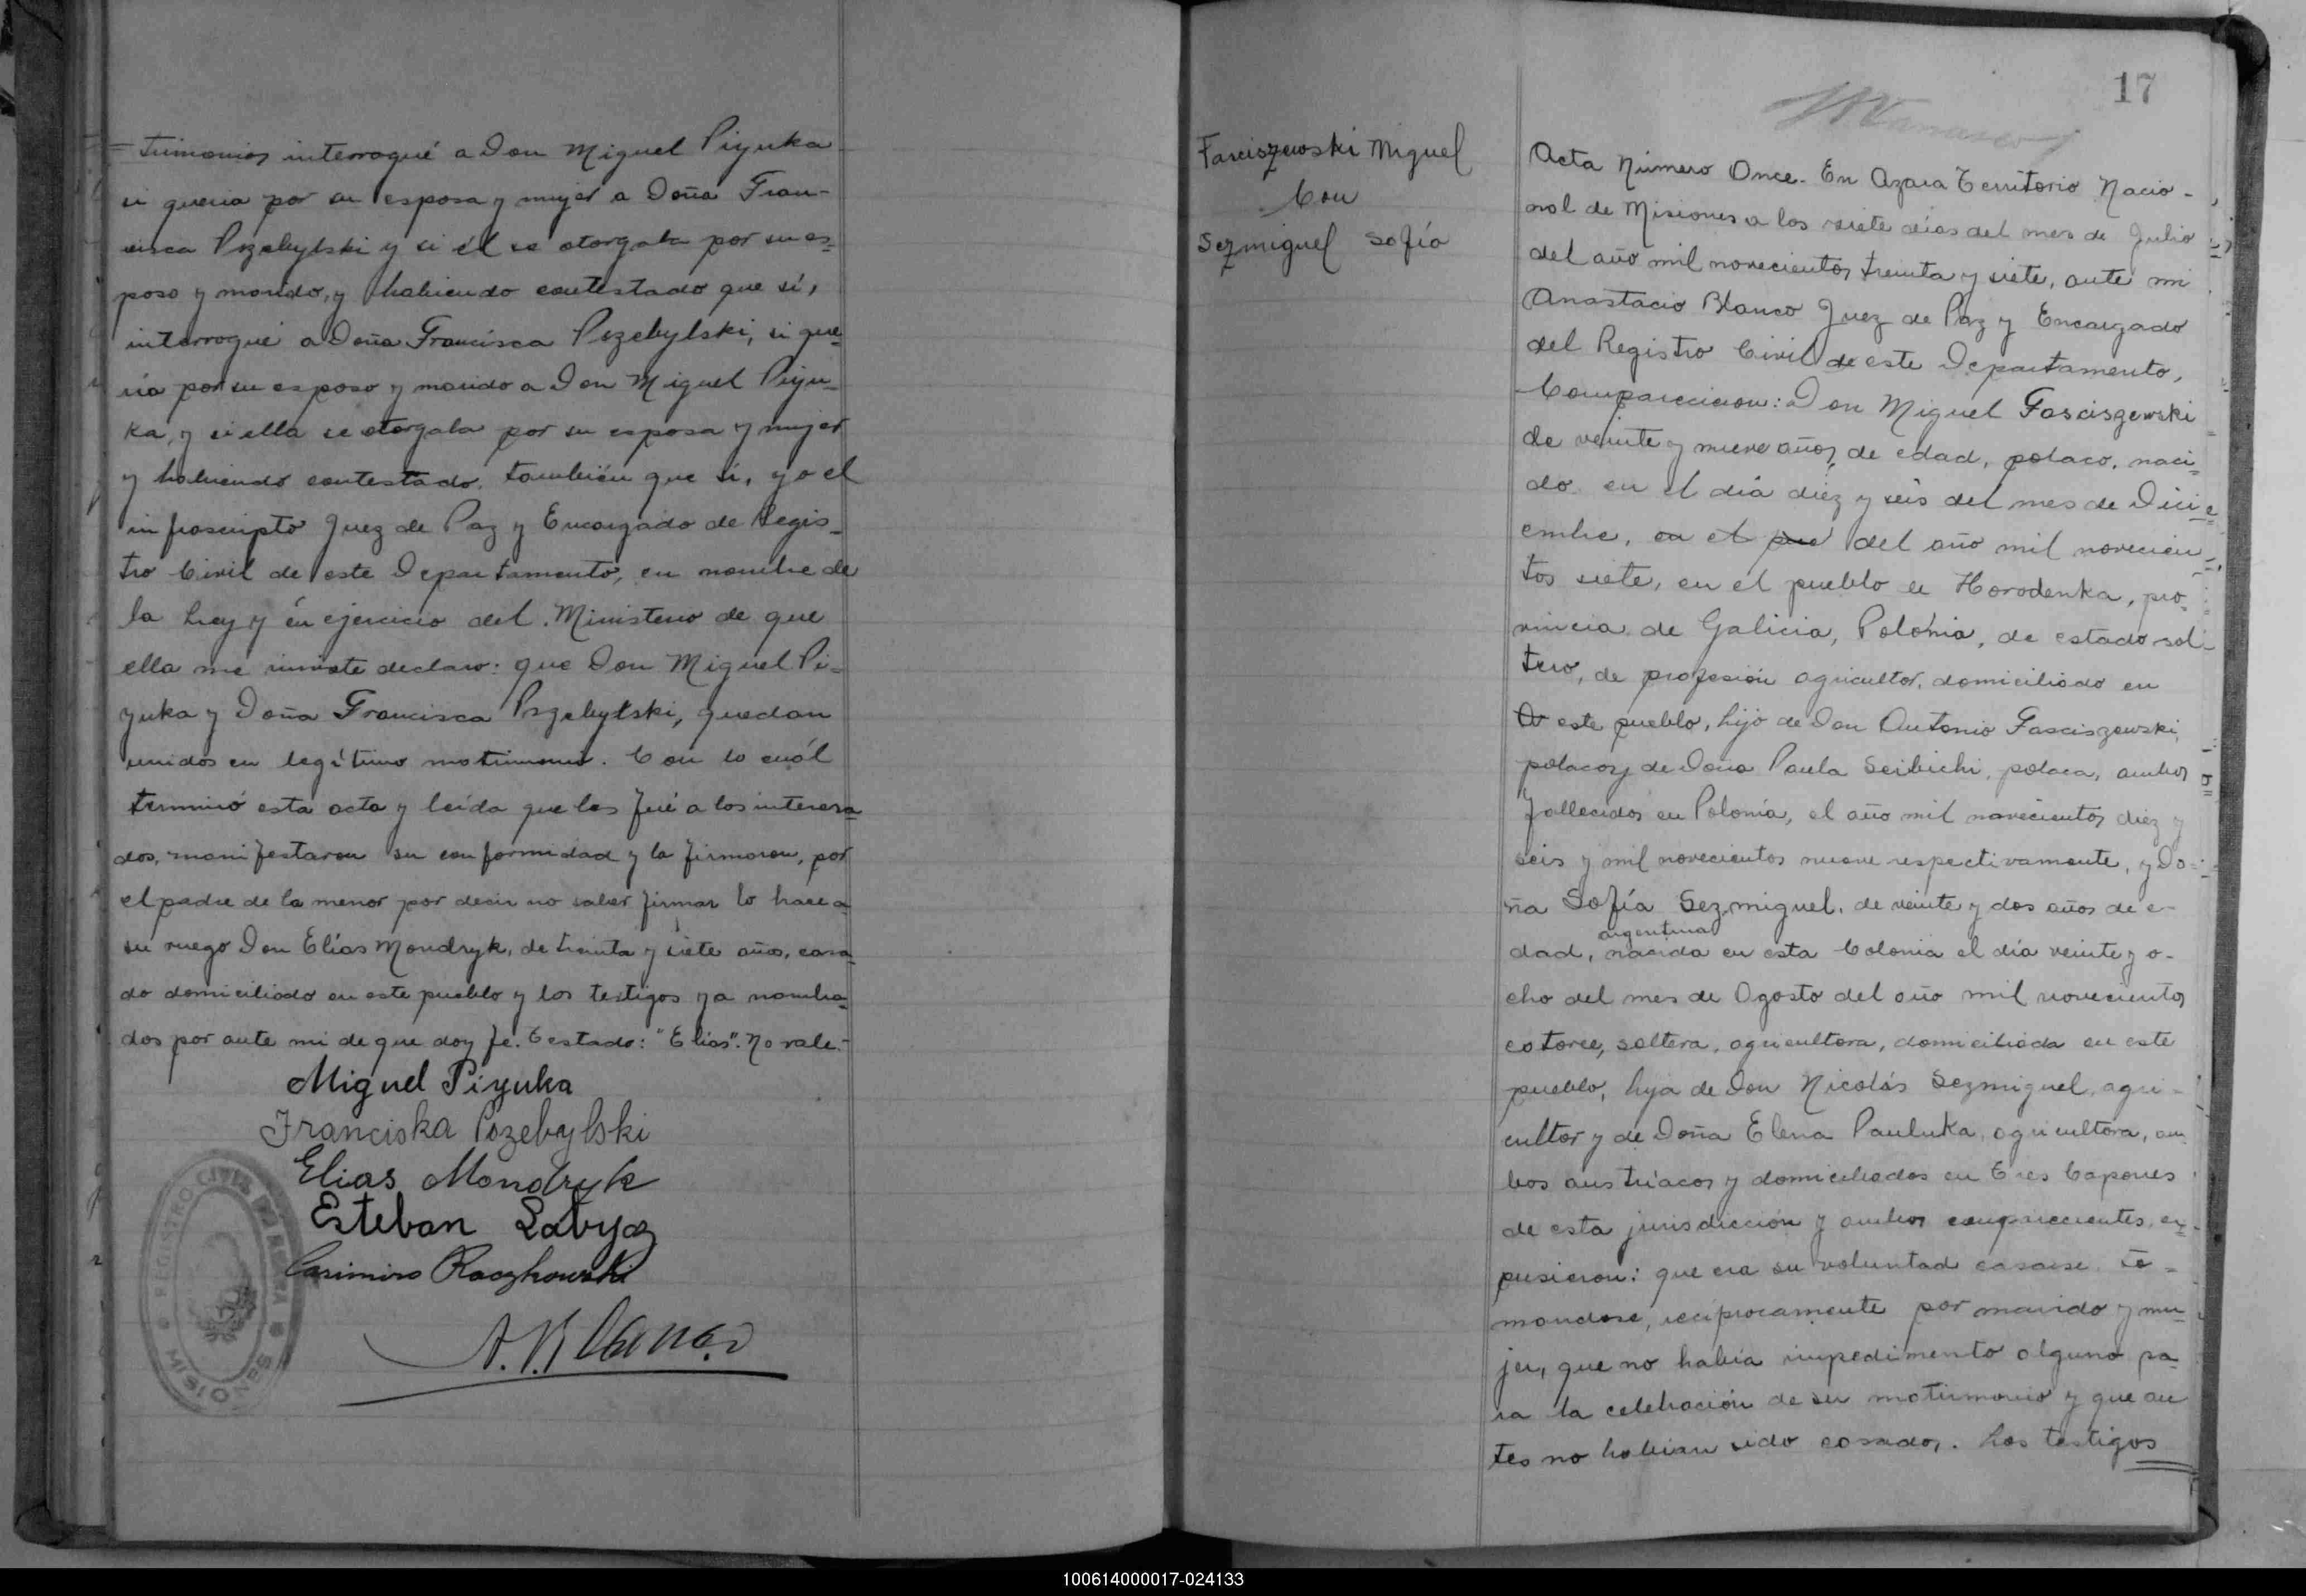 trimonios interrogué a Don Miguel Piyuka
si queria por su esposa y mujer a Doña Fran-
cisca Pszebylski y si él se otorgaba por su es-
poso y marido, y habiendo contestado que sí,
interrogué a Doña Francisca Pszebylski, si que-
ría por su esposo y marido a Don Miguel Piyu-
ka, y si ella se otorgaba por su esposa y mujer
y habiendo contestado, también que sí, yo el
infrascripto Juez de Paz y Encargado de Regis-
tro Civil de este Departamento, en nombre de
la Ley y en ejercicio del Ministerio de que
ella me inviste declaro: que Don Miguel Pi-
yuka y Doña Francisca Pszebylski, quedan
unidos en legítimo matrimonio. Con lo cuál
terminó esta acta y leída que les fué a los interesa-
dos, manifestaron su conformidad y la firmaron, por
el padre de la menor por decir no saber firmar lo hace a
su ruego Don Elías Mondryk, de treinta y siete años, casa-
do domiciliado en este pueblo y los testigos ya nombra-
dos por ante mi de que doy fe. Testado: "Elias". No vale.-
Miguel Piyuka
Franciska Pszebylski
Elias Mondryk
Esteban Latyaz
Casimiro Raczkowski
A. Blanco
REGISTRO CIVIL DE AZARA
MISIONES
17
Fasciszewski Miguel
Con
Sezmiguel Sofía
Acta Número Once. En Azara Territorio Nacio-
nal de Misiones a los siete días del mes de Julio
del año mil novecientos treinta y siete, ante mi
Anastacio Blanco Juez de Paz y Encargado
del Registro Civil de este Departamento,
Comparecieron: Don Miguel Fasciszewski
de veinte y nueve años de edad, polaco, naci-
do en el día diez y seis del mes de Dici-
embre, en el pue del año mil novecien-
tos siete, en el pueblo de Horodenka, pro-
vincia de Galicia, Polonia, de estado sol-
tero, de profesión agricultor, domiciliado en
A este pueblo, hijo de Don Antonio Fasciszewski,
polaco y de Doña Paula Scibichi, polaca, ambos
fallecidos en Polonia, el año mil novecientos diez y
seis y mil novecientos nueve respectivamente, y Do-
ña Sofía Sezmiguel, de veinte y dos años de e-
argentina
dad, nacida en esta Colonia el día veinte y o-
cho del mes de Agosto del año mil novecientos
catorce, soltera, agricultora, domiciliada en este
pueblo, hija de Don Nicolás Sezmiguel, agri-
cultor y de Doña Elena Pauluka, agricultora, am-
bos austríacos y domiciliados en Tres Capones
de esta jurisdicción y ambos comparecientes, ex-
pusieron: que era su voluntad casarse to-
mandose, recíprocamente por marido y mu-
jer, que no había impedimento alguno pa-
ra la celebración de su matrimonio y que an
tes no habian sido casados. Los testigos
100614000017-024133